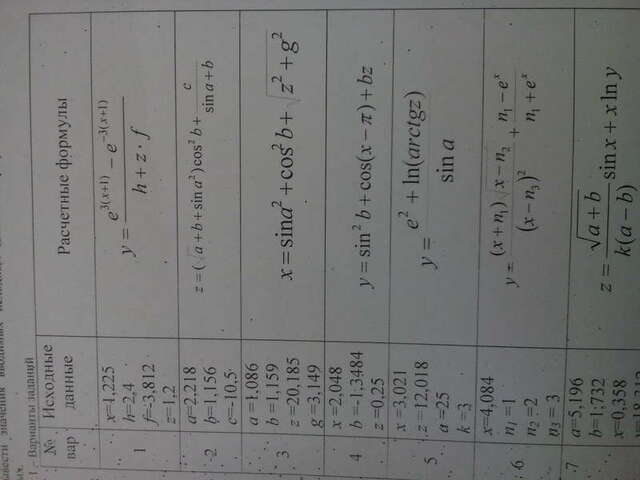 вывести значения вводимых
ых.
1 - Варианты заданий
№ вар
Исходные данные
Расчетные формулы
1
x=1,225
h=2,4
f=-3,812
z=1,2
y = (e^{3(x+1)} − e^{−3(x+1)}) / (h + z · f)
2
a=2,218
b=1,156
c=-10,5
z = (√a + b + sin a²) cos² b + c / (sin a + b)
3
a =1,086
b =1,159
z =20,185
g =3,149
x = sin a² + cos² b + √(z² + g²)
4
x =2,048
b =-1,3484
z =0,25
y = sin² b + cos(x − π) + bz
5
x =3,021
z =12,018
a =25
k =3
y = (e² + ln(arctgz)) / sin a
6
x=4,084
n₁ =1
n₂ =2
n₃ = 3
y = (x + n₁)√(x − n₂) / (x − n₃)² + (n₁ − eˣ) / (n₁ + eˣ)
7
a=5,196
b=1,732
x=0,358
y=18,312
z = √(a + b) / k(a − b) sin x + x ln y